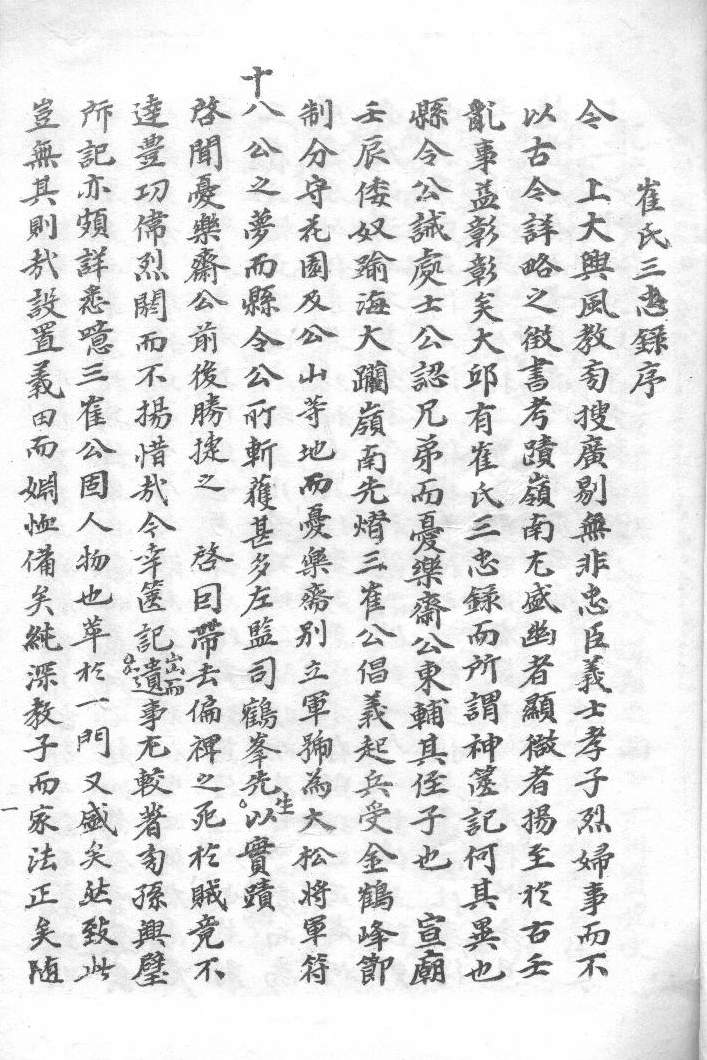 崔氏三忠錄序
今 上大興風敎旁搜廣剔無非忠臣義士孝子烈婦事而不
以古今詳略之徵書考蹟嶺南尤盛幽者顯微者揚至於右壬
亂事益彰彰矣大邱有崔氏三忠錄而所謂神篋記何其異也
縣令公誡處士公認兄弟而憂樂齋公東輔其侄子也 宣廟
壬辰倭奴踰海大躪嶺南先熸三崔公倡義起兵受金鶴峰節
制分守花園及公山等地而憂樂齋別立軍號為大松將軍符
十八公之夢而縣令公所斬獲甚多左監司鶴峯先生以實蹟
啓聞憂樂齋公前後勝捷之 啓曰帶去偏裨之死於賊竟不
達豊功偉烈闕而不揚惜哉今幸篋記出而公遺事尤較著旁孫興璧
所記亦頗詳悉噫三崔公固人物也萃於一門又盛矣然致此
豈無其則哉設置義田而婣恤備矣純深敎子而家法正矣随
一